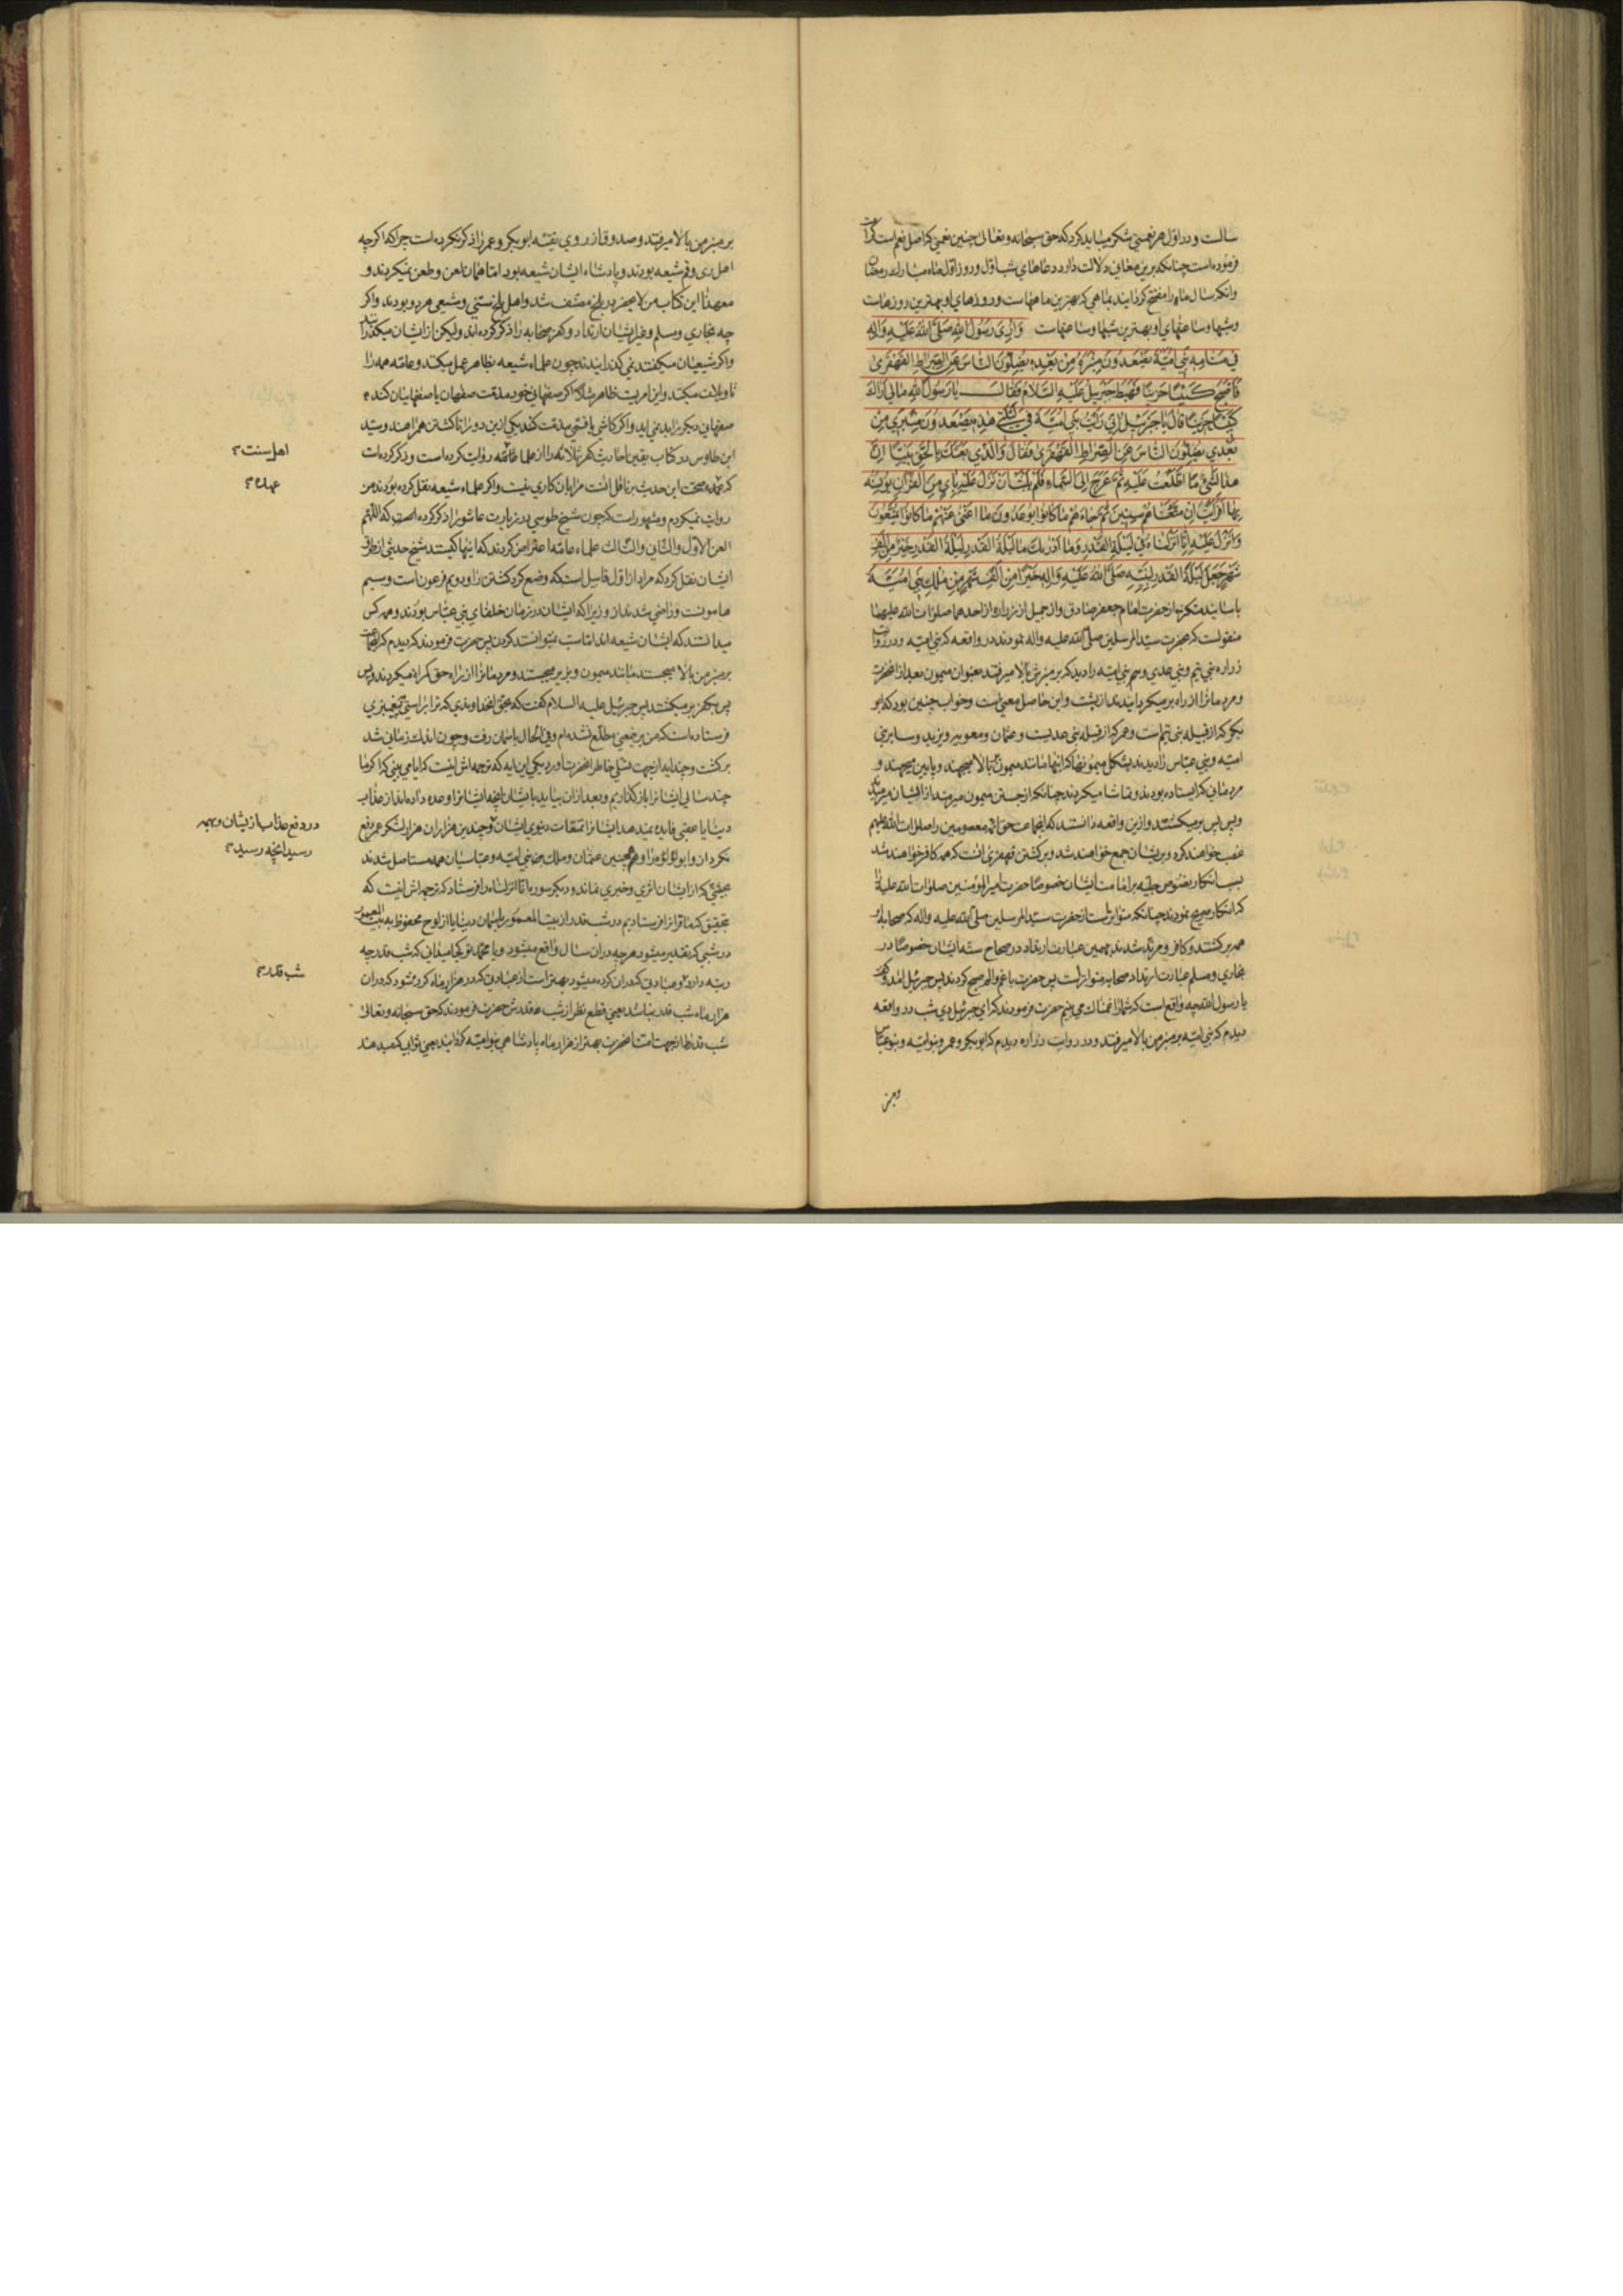 سالست و در اول هر نعمتی شکر میباید کرد که حق سبحانه و تعالی چنین نعمتی که اصل نعم است کرامت
فرموده است چنانکه برین معانی دلالت دارد دعاهای شب اول و روز اول ماه مبارك رمضان
وانکه سال ما را مفتتح کردانیدند بماهی که بهترین ماههاست و روزهای او بهترین روزهاست
وشبها وساعتهای او بهترین شبها وساعتهاست وَاُرِیَ رَسُولُ اللهِ صَلَّی اللهُ عَلَیْهِ وَاٰلِهِ
فِي مَنَامِهِ بَنِي اُمَيَّةَ يَصْعَدُونَ مِنْبَرَهُ مِنْ بَعْدِهِ يُضِلُّونَ النَّاسَ عَنِ الصِّرَاطِ القَهْقَرَى
فَاَصْبَحَ كَئِيبًا حَزِينًا فَهَبَطَ جَبْرَئِيلُ عَلَيْهِ السَّلَامُ فَقَالَ يَا رَسُولَ اللهِ مَا لِي اَرَاكَ
كَئِيبًا حَزِينًا قَالَ يَا جَبْرَئِيلُ اِنِّي رَاَيْتُ بَنِي اُمَيَّةَ فِي لَيْلَتِي هٰذِهِ يَصْعَدُونَ مِنْبَرِي مِنْ
بَعْدِي يُضِلُّونَ النَّاسَ عَنِ الصِّرَاطِ القَهْقَرَى فَقَالَ وَالَّذِي بَعَثَكَ بِالْحَقِّ نَبِيًّا اِنَّ
هٰذَا لَشَيْءٌ مَا اطَّلَعْتُ عَلَيْهِ ثُمَّ عَرَجَ اِلَى السَّمَاءِ فَلَمْ يَلْبَثْ اَنْ نَزَلَ عَلَيْهِ بِاٰيٍ مِنَ الْقُرْاٰنِ يُونِسُهُ
بِهَا اَفَرَاَيْتَ اِنْ مَتَّعْنَاهُمْ سِنِينَ ثُمَّ جَاءَهُمْ مَا كَانُوا يُوعَدُونَ مَا اَغْنٰى عَنْهُمْ مَا كَانُوا يُمَتَّعُونَ
وَاَنْزَلَ عَلَيْهِ اِنَّا اَنْزَلْنَاهُ فِي لَيْلَةِ القَدْرِ وَمَا اَدْرٰيكَ مَا لَيْلَةُ القَدْرِ لَيْلَةُ القَدْرِ خَيْرٌ مِنْ اَلْفِ
شَهْرٍ جَعَلَ لَيْلَةَ القَدْرِ لِنَبِيِّهِ صَلَّى اللهُ عَلَيْهِ وَاٰلِهِ خَيْرًا مِنْ اَلْفِ شَهْرٍ مِنْ مُلْكِ بَنِي اُمَيَّةَ
باسانید متکثره از حضرت امام جعفر صادق واز جمیل از زراره از احدهما صلوات الله علیهما
منقولست که حضرت سید المرسلین صلی الله علیه واله نمودند در واقعه که بنی امیه و در روایت
زراره بنی تیم و بنی عدی و بنی امیه را دید که بر منبرش بالا میرفتند بعنوان میمون بعد از آنحضرت
و مردمانرا از راه برمیکردانیدند از پشت واین حاصل معنی است و خواب چنین بود که ابو
بکر که از قبیله بنی تیم است و عمر که از قبیله بنی عدیست و عثمان و معویه و یزید و سایر بنی
امیه و بنی عباس را دیدند بشکل میمونها که اینها مانند میمون بالا میجهند و پایین میجهند و
مردمانی که ایستاده بودند و تماشا میکردند چنانکه از جستن میمون
وپس پس برمیکشتند وازین واقعه دانستند که این جماعت حق ائمه معصومین را صلوات الله علیهم
غصب خواهند کرد و بریشان جمع خواهند شد و برکشتن قهقری آنست که همه کافر خواهند شد
بسبب انکار نصوص جلیه بر امامت ایشان خصوصا حضرت امیر المؤمنین صلوات الله علیه
که انکار صریح نمودند چنانکه متواتر است از حضرت سید المرسلین صلی الله علیه واله که صحابه
همه برکشتند و کافر و مرتد شدند بهمین عبارت ارتداد در صحاح سته ایشان خصوصا در
بخاری و مسلم عبارت ارتداد صحابه متواتر است پس حضرت با غم والم صبح کردند پس جبرئیل امد
یا رسول الله چه واقع است که شما را غمناک می بینم حضرت فرمودند که ای جبرئیل دی شب در واقعه
دیدم که بنی امیه بر منبر من بالا میرفتند و در روایت زراره دیدم که ابو بکر و عمر و بنو امیه و بنو عباس
بر منبر من بالا میرفتند و صدوق از روی تقیه ابو بکر و عمر را ذکر نکرده است چرا که اکرچه
اهل ری و قم شیعه بودند و پادشاه ایشان شیعه بود اما همان لعن و طعن نمیکردند و
معهذا این کتاب من لا یحضر در بلخ مصنف شد و اهل بلخ سنی و شیعی هر دو بودند واکر
چه بخاری و مسلم و غیر ایشان ارتداد و کفر صحابه را ذکر کرده اند ولیکن از ایشان میکذرانند
واکر شیعیان میکفتند نمی کذرانیدند چون علماء شیعه بظاهر عمل میکنند و عامه همه را
تاویلات میکنند واین امریست ظاهر مثلا اکر صفهانی خود مذمت صفهان یا صفهانیان کند
صفهانی دیکر را بد نمی اید واکر کاشی یا قمی مذمت کند یکی ازین دو را تا کشتن همراهند و سید
ابن طاوس در کتاب یقین احادیث کفر ثلاثه را از علماء عامه روایت کرده است و ذکر کرده است
که عهده صحت این حدیث بر ناقل انست مرا بان کاری نیست واکر علماء شیعه نقل کرده بودند من
روایت نمیکردم و مشهور است که چون شیخ طوسی در زیارت عاشورا ذکر کرده است که اللهم
العن الاول والثانی والثالث علماء عامه اعتراض کردند که اینها کیستند شیخ حدیثی از طرق
ایشان نقل کرد که مراد از اول قابیل است که وضع کرد کشتن را و دویم فرعون است و سیم
سامریست و راضی شدند از و زیرا که ایشان در زمان خلفای بنی عباس بودند و همه کس
میدانستند که ایشان شیعه اند اما سب نمیتوانستند کردن پس حضرت فرمودند که دیدم که اینجماعت
بر منبر من بالا میجستند مانند میمون و بزیر میجستند و مردمانرا از راه حق کمراه میکردند و پس
پس بکفر برمیکشتند پس جبرئیل علیه السلام کفت که بحق انخداوندی که ترا براستی به پیغمبری
فرستاده است که من برین معنی مطلع نشده ام و فی الحال باسمان رفت و چون اندك زمانی شد
برکشت و چند ایه از جهت تسلی خاطر انحضرت اورد یکی این ایه که ترجمه اش اینست که ایا می بینی که اکر ما
چند سالی ایشانرا باز کذاریم و بعد از ان بیاید بایشان انچه ایشانرا وعده داده اند از عذاب
دنیا یا عقبی فایده نمیدهد ایشانرا تمتعات دنیوی ایشان و چندین هزاران هزار لشکر عمر دفع
نکرد از و ابو لؤلؤه را و همچنین عثمان و ملك بنی امیه و عباسیان همه مستاصل شدند
بحیثی که از ایشان اثری و خبری نماند و دیکر سوره انا انزلناه را فرستاد که ترجمه اش اینست که
بتحقیق که ما قرانرا فرستادیم در شب قدر از بیت المعمور باسمان دنیا یا از لوح محفوظ به بیت المعمور
در شبی که تقدیر میشود هرچه در ان سال واقع میشود و یا محمد تو کجا میدانی که شب قدر چه
رتبه دارد و عبادتی که در ان کرده میشود بهتر است از عبادتی که در هزار ماه کرده شود که در ان
هزار ماه شب قدر نباشد یعنی قطع نظر از شب قدرش حضرت فرمودند که حق سبحانه و تعالی
شب قدر را از جهت انحضرت بهتر از هزار ماه پادشاهی بنو امیه کردانید یعنی ثوابی که میدهند
اهل سنت
عهده
در دفع عذاب از یشان و بهمه
رسید انچه رسید
شب قدر